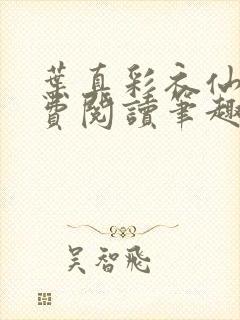 葉真彩衣仙
費閱讀筆趣
吳智飛